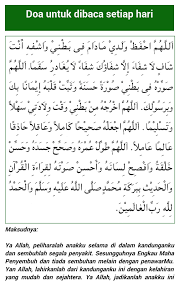 Doa untuk dibaca setiap hari
اَللّٰهُمَّ احْفَظْ وَلَدِيْ مَادَامَ فِى بَطْنِيْ وَاشْفِهِ أَنْتَ
شَافٍ لَا شِفَاءَ إِلَّا شِفَاؤُكَ شِفَاءً لَا يُغَادِرُ سَقَمًا. اَللّٰهُمَّ
صَوِّرْهُ فِى بَطْنِيْ صُوْرَةً حَسَنَةً وَثَبِّتْ قَلْبَهُ إِيْمَانًا بِكَ
وَبِرَسُوْلِكَ. اَللّٰهُمَّ أَخْرِجْهُ مِنْ بَطْنِيْ وَقْتَ وِلَادَتِيْ سَهْلًا
وَتَسْلِيْمًا. اَللّٰهُمَّ اجْعَلْهُ صَحِيْحًا كَامِلًا وَعَاقِلًا حَاذِقًا
عَالِمًا عَامِلًا. اَللّٰهُمَّ طَوِّلْ عُمْرَهُ وَصَحِّحْ جَسَدَهُ وَحَسِّنْ
خُلُقَهُ وَافْصَحْ لِسَانَهُ وَأَحْسِنْ صَوْتَهُ لِقِرَاءَةِ الْقُرْآنِ
وَالْحَدِيْثِ بِبَرَكَةِ مُحَمَّدٍ صَلَّى اللهُ عَلَيْهِ وَسَلَّمَ وَالْحَمْدُ
لِلّٰهِ رَبِّ الْعَالَمِيْنَ.
Maksudnya:
Ya Allah, peliharalah anakku selama di dalam kandunganku
dan sembuhlah segala penyakit. Sesungguhnya Engkau Maha
Penyembuh dan tiada sembuhan melain dengan penawarMu.
Yan Allah, lahirkanlah dari kandunganku ini dengan kelahiran
yang mudah dan sejahtera. Ya Allah, jadikanlah anakku ini